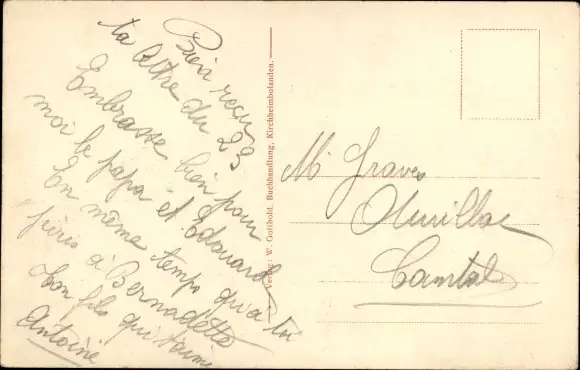 Bien reçu
ta lettre du 23
Embrasse bien pour
moi le papa et Edouard
En même temps qu'a toi
à Bernadette
Ton fils qui t'aime
Antoine
Verlag: W. Gotthold, Buchhandlung, Kirchheimbolanden.
Mr Graves
Aurillac
Cantal